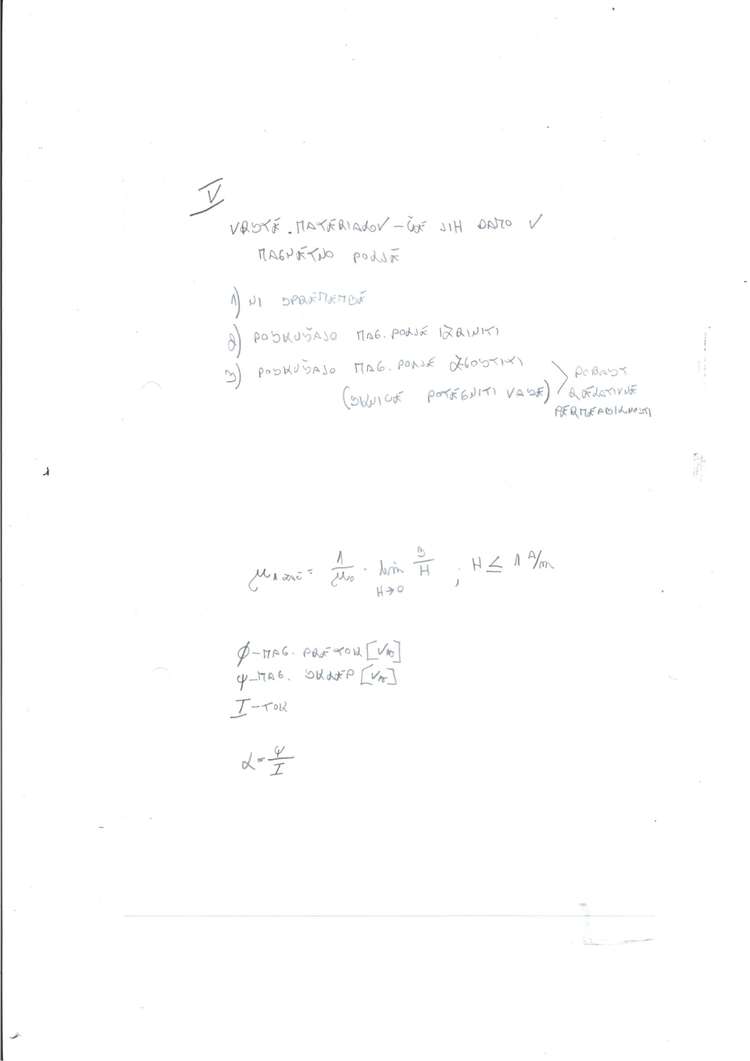 V
VRSTE MATERIALOV – ČE JIH DAMO V
MAGNETNO POLJE
1) NI SPREMEMBE
2) POSKUŠAJO MAG. POLJE IZRINITI
3) POSKUŠAJO MAG. POLJE ZGOSTITI
(SILNICE POTEGNITI VASE) > POJAV
RELATIVNE
PERMEABILNOSTI
= 1/μ₀ · lim H→0 B/H ; H ≤ 1 A/m
Φ – MAG. PRETOK [Vs]
Ψ – MAG. SKLEP [Vs]
I – TOK
L = Ψ/I